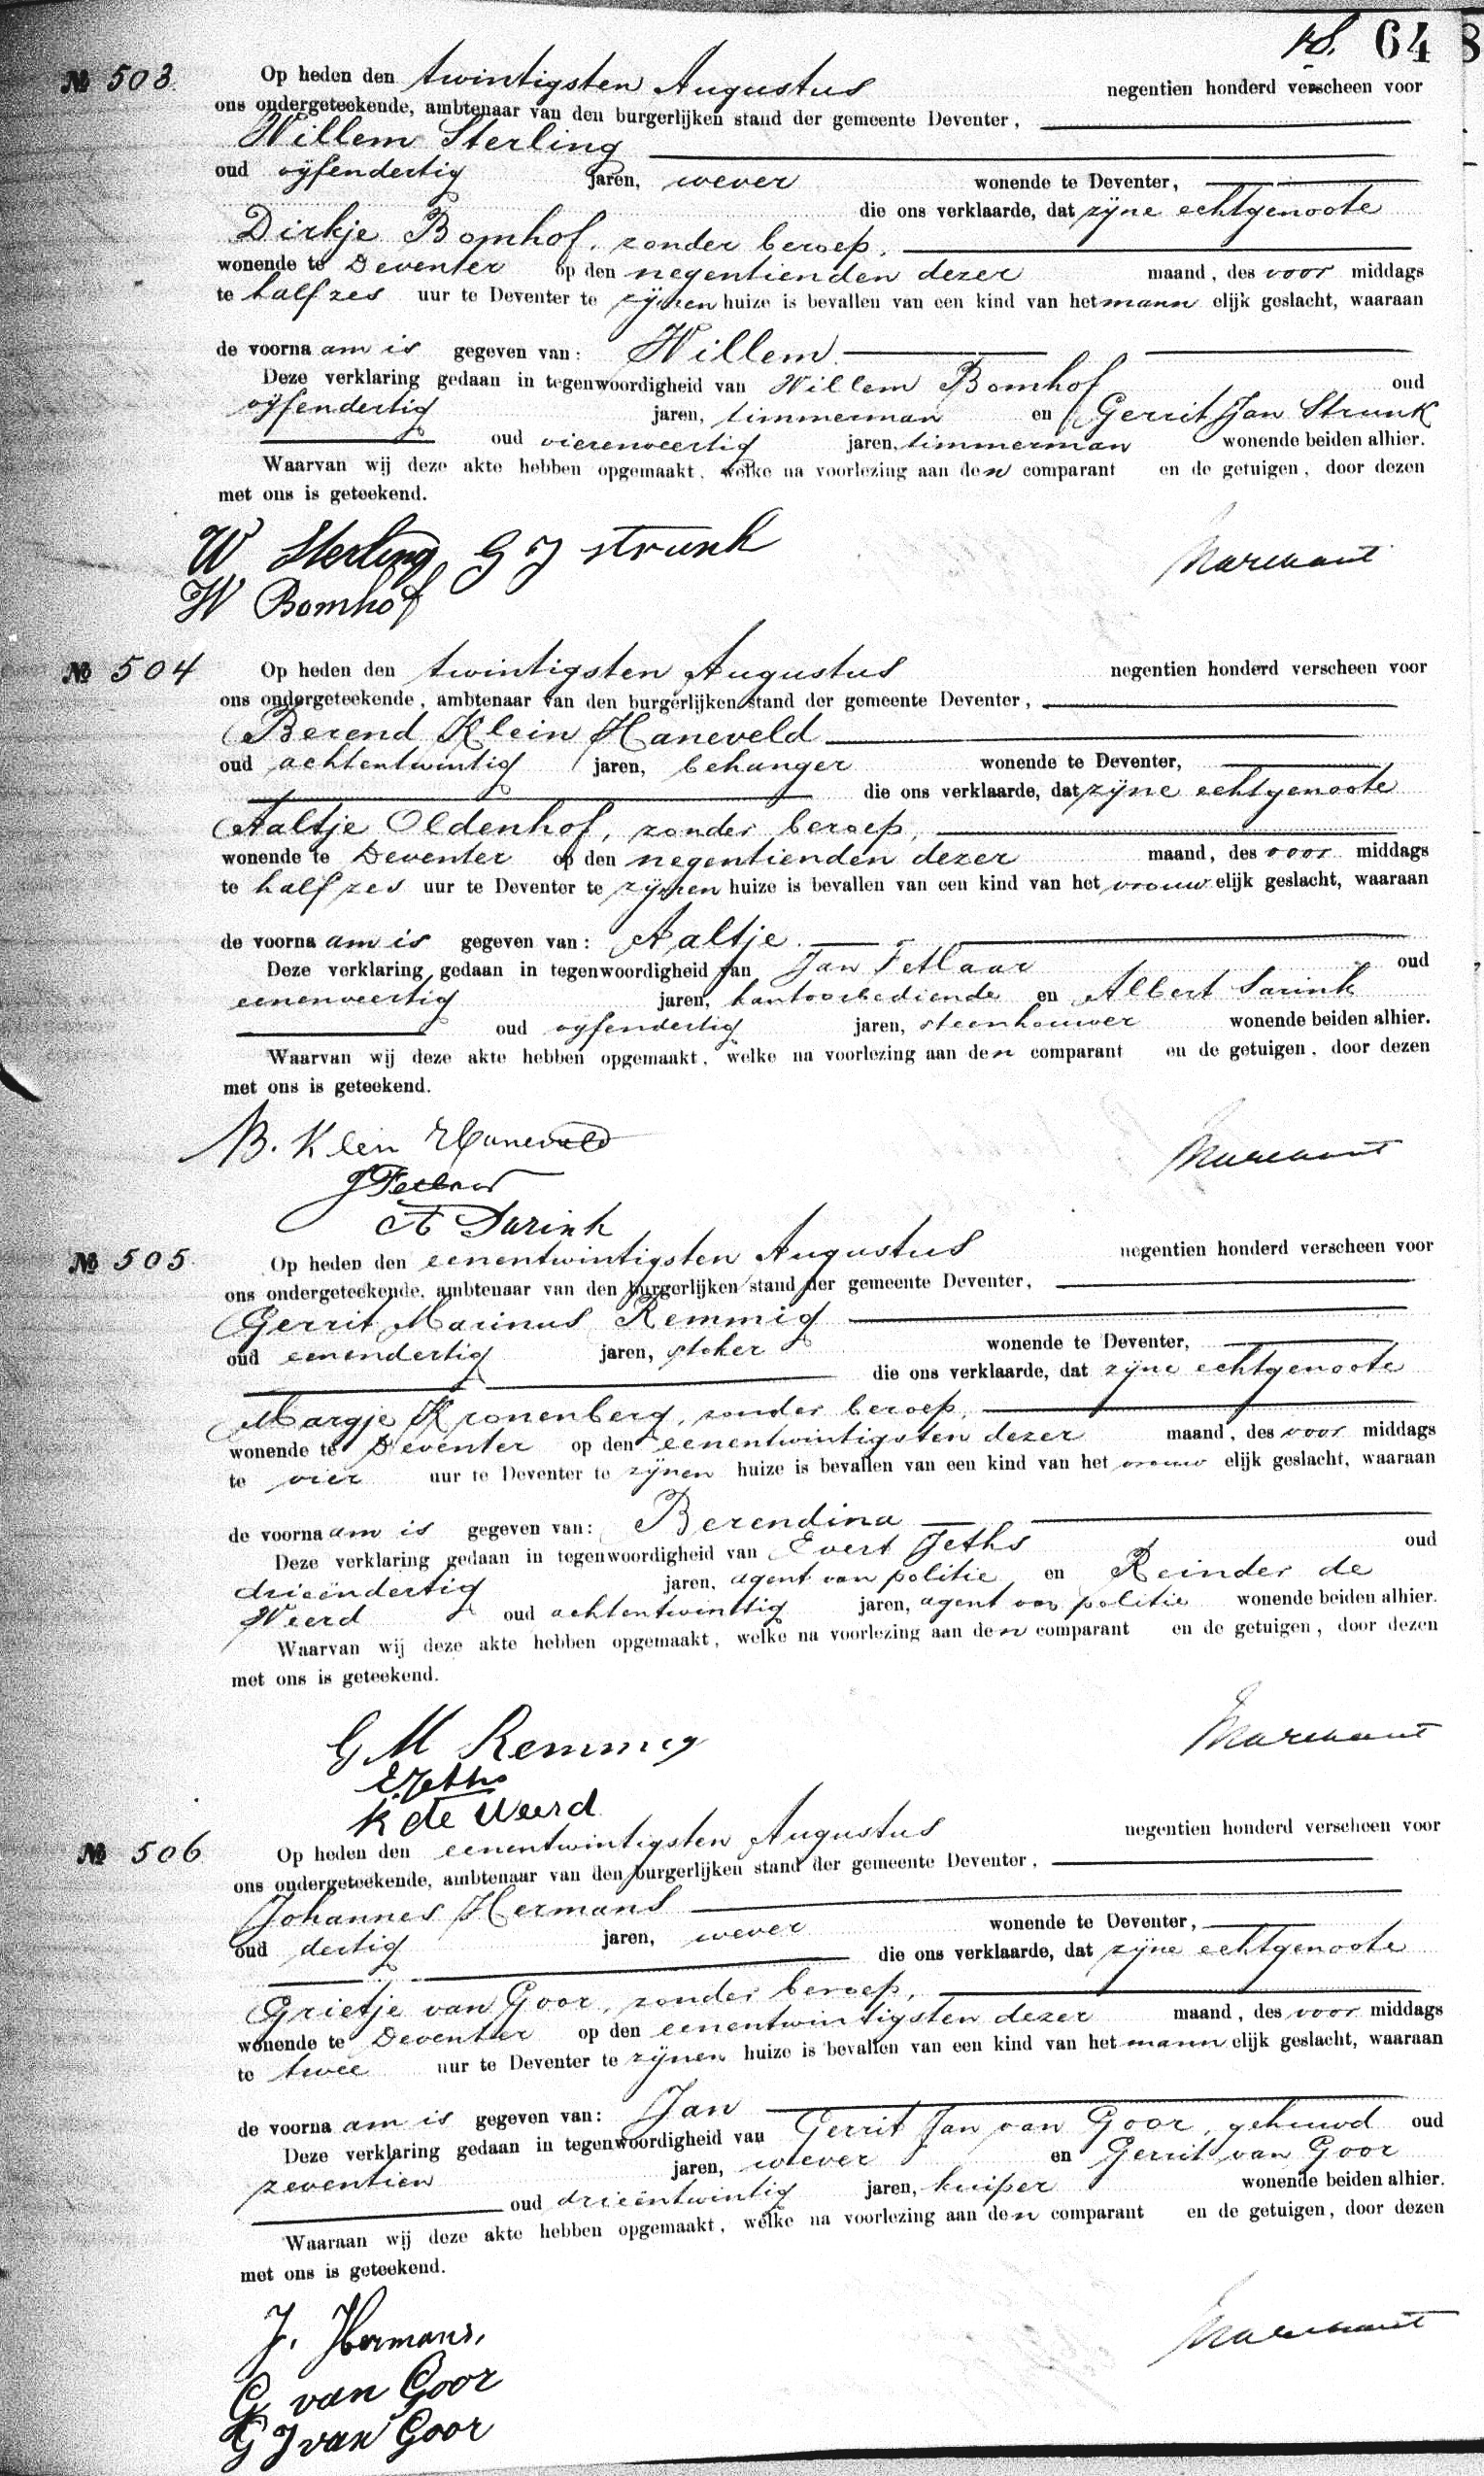 64 8
№ 503. Op heden den twintigsten Augustus negentien honderd verscheen voor
ons ondergeteekende, ambtenaar van den burgerlijken stand der gemeente Deventer,
Willem Sterling
oud vyfendertig jaren, wever wonende te Deventer,
die ons verklaarde, dat zyne echtgenoote
Dirkje Bomhof, zonder beroep,
wonende te Deventer op den negentienden dezer maand, des voor middags
te half zes uur te Deventer te zijnen huize is bevallen van een kind van het mann elijk geslacht, waaraan
de voorna am is gegeven van: Willem.
Deze verklaring gedaan in tegenwoordigheid van Willem Bomhof oud
vyfendertig jaren, timmerman en Gerrit Jan Strunk
oud vierenveertig jaren, timmerman wonende beiden alhier.
Waarvan wij deze akte hebben opgemaakt, welke na voorlezing aan den comparant en de getuigen, door dezen
met ons is geteekend.
W Sterling G J Strunk Marchant
W Bomhof
№ 504 Op heden den twintigsten Augustus negentien honderd verscheen voor
ons ondergeteekende, ambtenaar van den burgerlijken stand der gemeente Deventer,
Berend Klein Haneveld
oud achtentwintig jaren, behanger wonende te Deventer,
die ons verklaarde, dat zyne echtgenoote
Aaltje Oldenhof, zonder beroep,
wonende te Deventer op den negentienden dezer maand, des voor middags
te half zes uur te Deventer te zijnen huize is bevallen van een kind van het vrouw elijk geslacht, waaraan
de voorna am is gegeven van: Aaltje.
Deze verklaring gedaan in tegenwoordigheid van Jan Fetlaar oud
eenenveertig jaren, kantoorbediende en Albert Sarink
oud vyfendertig jaren, steenhouwer wonende beiden alhier.
Waarvan wij deze akte hebben opgemaakt, welke na voorlezing aan den comparant en de getuigen, door dezen
met ons is geteekend.
B. Klein Haneveld Marchant
J Fetlaar
A Sarink
№ 505. Op heden den eenentwintigsten Augustus negentien honderd verscheen voor
ons ondergeteekende, ambtenaar van den burgerlijken stand der gemeente Deventer,
Gerrit Marinus Remmig
oud eenendertig jaren, stoker wonende te Deventer,
die ons verklaarde, dat zyne echtgenoote
Margje Kronenberg, zonder beroep,
wonende te Deventer op den eenentwintigsten dezer maand, des voor middags
te vier uur te Deventer te zijnen huize is bevallen van een kind van het vrouw elijk geslacht, waaraan
de voorna am is gegeven van: Berendina
Deze verklaring gedaan in tegenwoordigheid van Evert Jeths oud
drieëndertig jaren, agent van politie en Reinder de
Weerd oud achtentwintig jaren, agent van politie wonende beiden alhier.
Waarvan wij deze akte hebben opgemaakt, welke na voorlezing aan den comparant en de getuigen, door dezen
met ons is geteekend.
G M Remmig Marchant
E Jeths
R de Weerd
№ 506 Op heden den eenentwintigsten Augustus negentien honderd verscheen voor
ons ondergeteekende, ambtenaar van den burgerlijken stand der gemeente Deventer,
Johannes Hermans
oud dertig jaren, wever wonende te Deventer,
die ons verklaarde, dat zyne echtgenoote
Grietje van Goor, zonder beroep,
wonende te Deventer op den eenentwintigsten dezer maand, des voor middags
te twee uur te Deventer te zijnen huize is bevallen van een kind van het mann elijk geslacht, waaraan
de voorna am is gegeven van: Jan
Deze verklaring gedaan in tegenwoordigheid van Gerrit Jan van Goor, gehuwd oud
zeventien jaren, wever en Gerrit van Goor
oud drieëntwintig jaren, kuiper wonende beiden alhier.
Waaraan wij deze akte hebben opgemaakt, welke na voorlezing aan den comparant en de getuigen, door dezen
met ons is geteekend.
J. Hermans, Marchant
G van Goor
G J van Goor